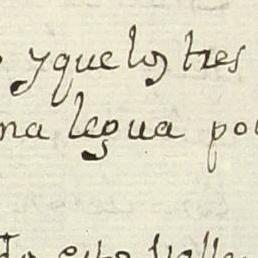 yque los tres
na legua por
do esto Valle